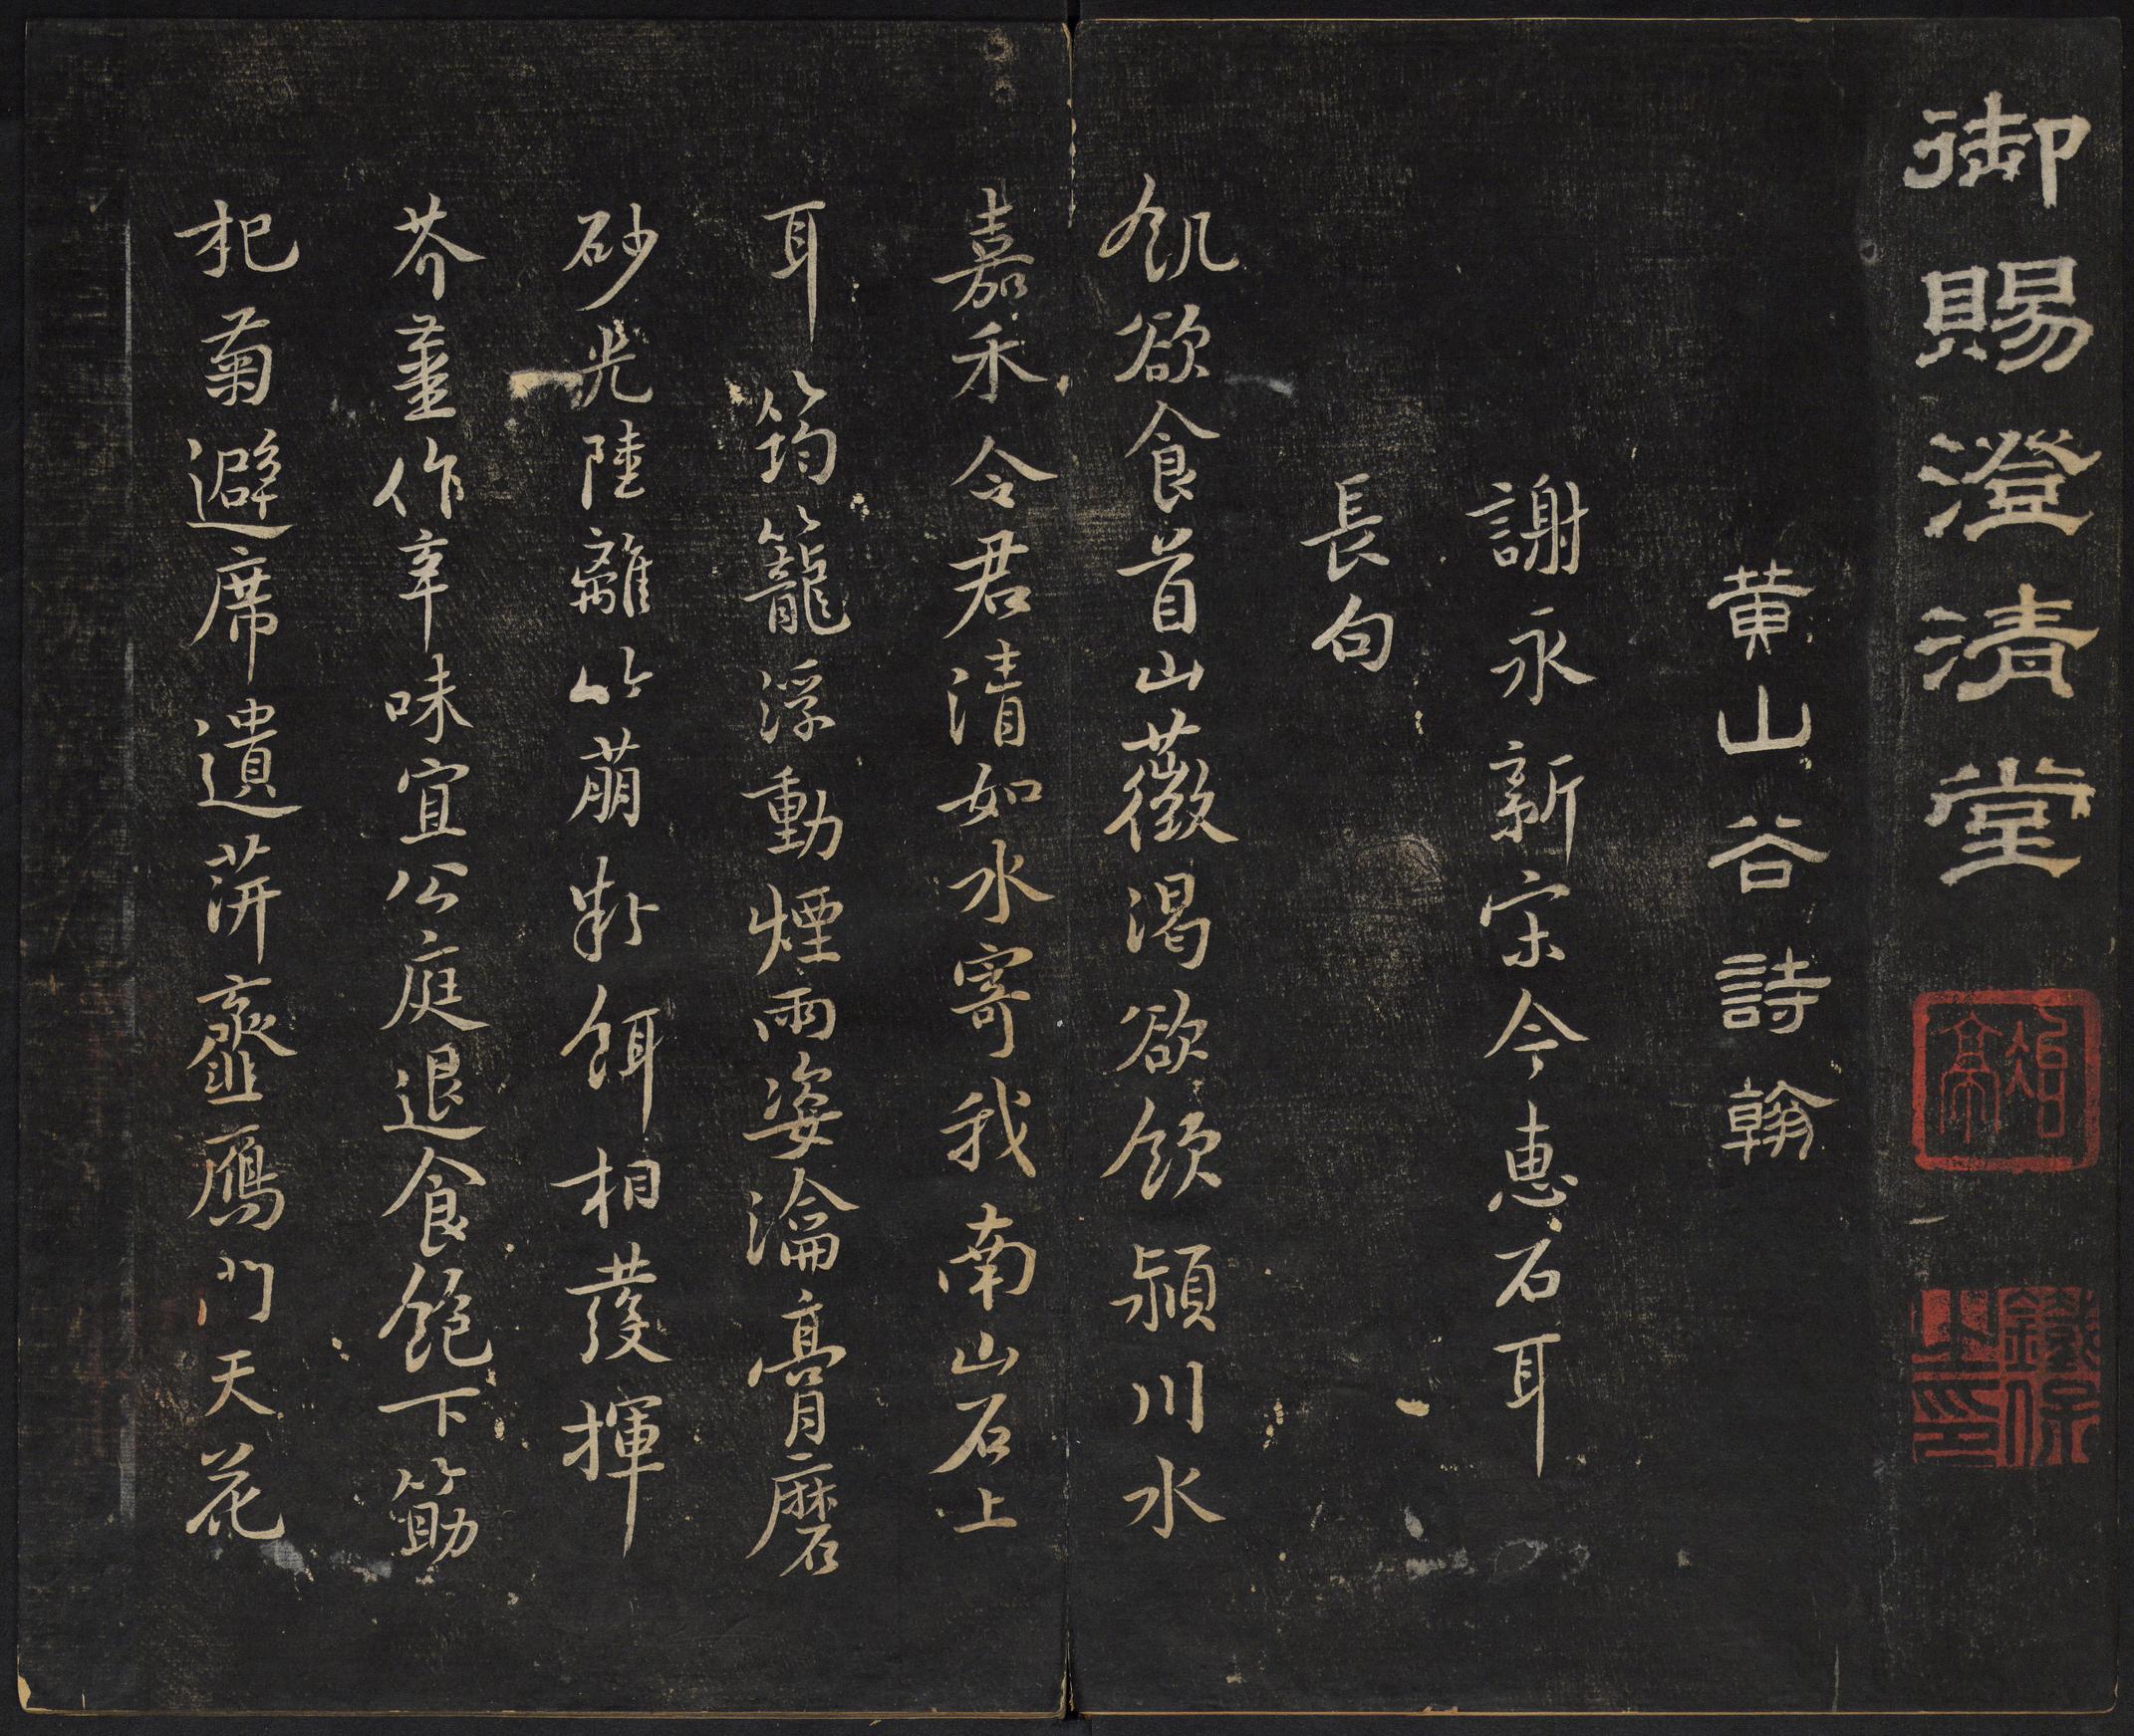 御賜澄清堂
鐵保之印
黄山谷詩翰
謝永新宋令惠石耳
長句
飢欲食首山薇渴欲飲潁川水
嘉禾令君清如水寄我南山石上
耳筠籠浮動煙雨姿瀹膏磨
砂光陸離竹萠粉餌相發揮
芥薑作辛味宜公庭退食飽下筯
杞菊避席遺蓱虀鴈門天花